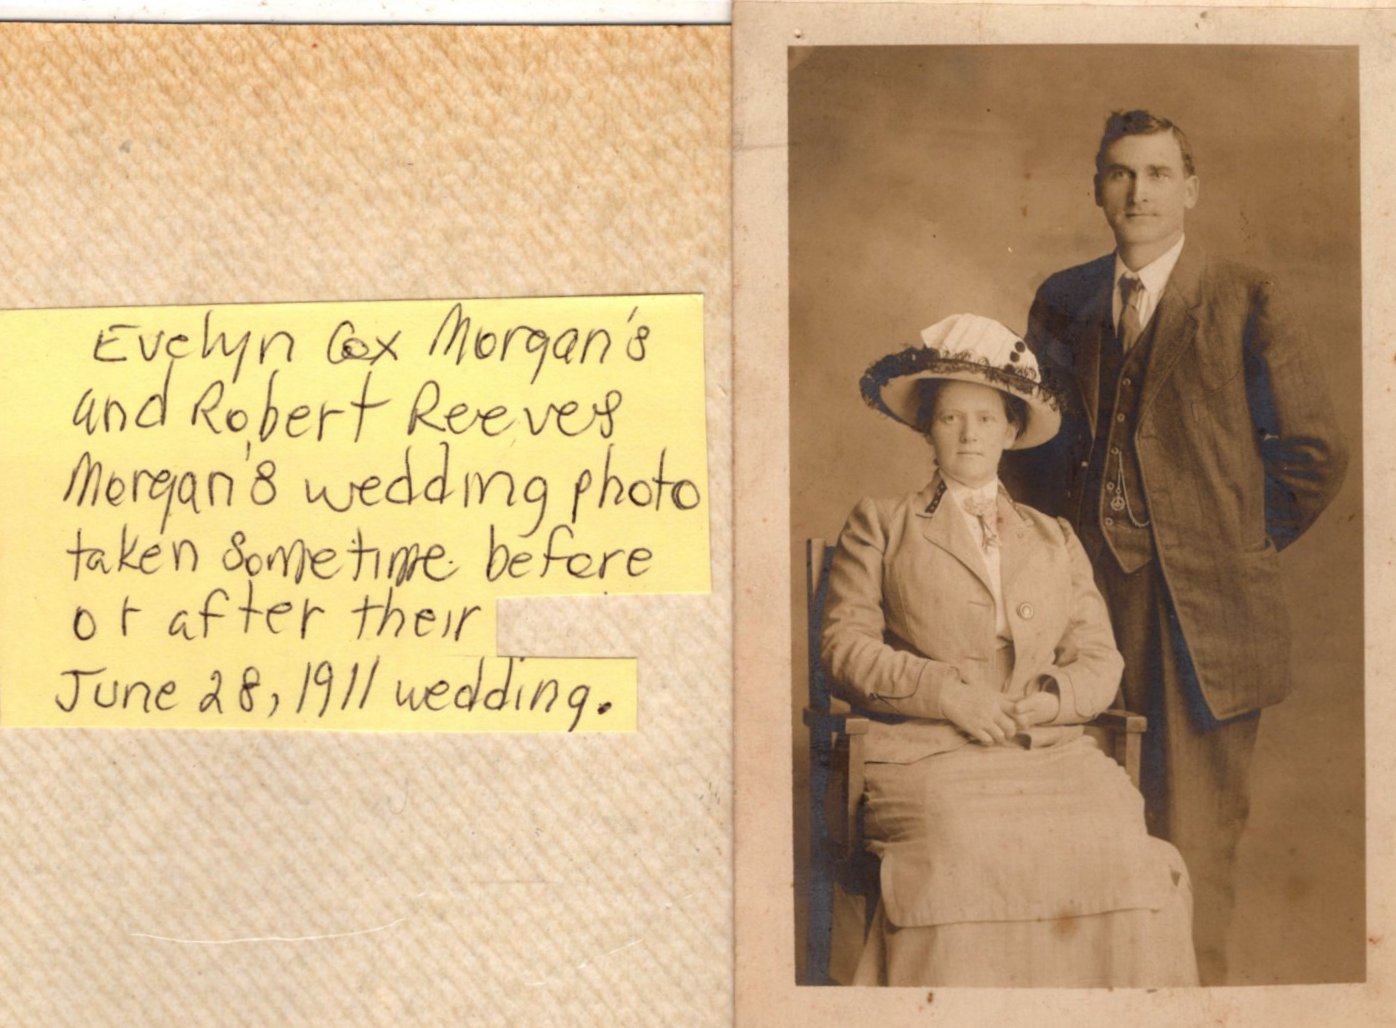 Evelyn Cox Morgan's
and Robert Reeves
Morgan's wedding photo
taken sometime before
or after their
June 28, 1911 wedding.